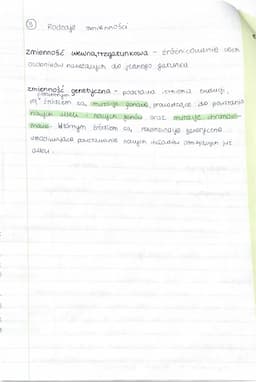 ③ Rodzaje zmienności
zmienność wewnątrzgatunkowa - zróżnicowanie cech
osobników należących do jednego gatunku
zmienność genetyczna - podstawa istnienia ewolucji,
jej źródłem są mutacje genowe, prowadzące do powstania
nowych alleli i nowych genów oraz mutacje chromoso-
mowe. Wtórnym źródłem są rekombinacje genetyczne
umożliwiające powstawanie nowych układów istniejących już
alleli.